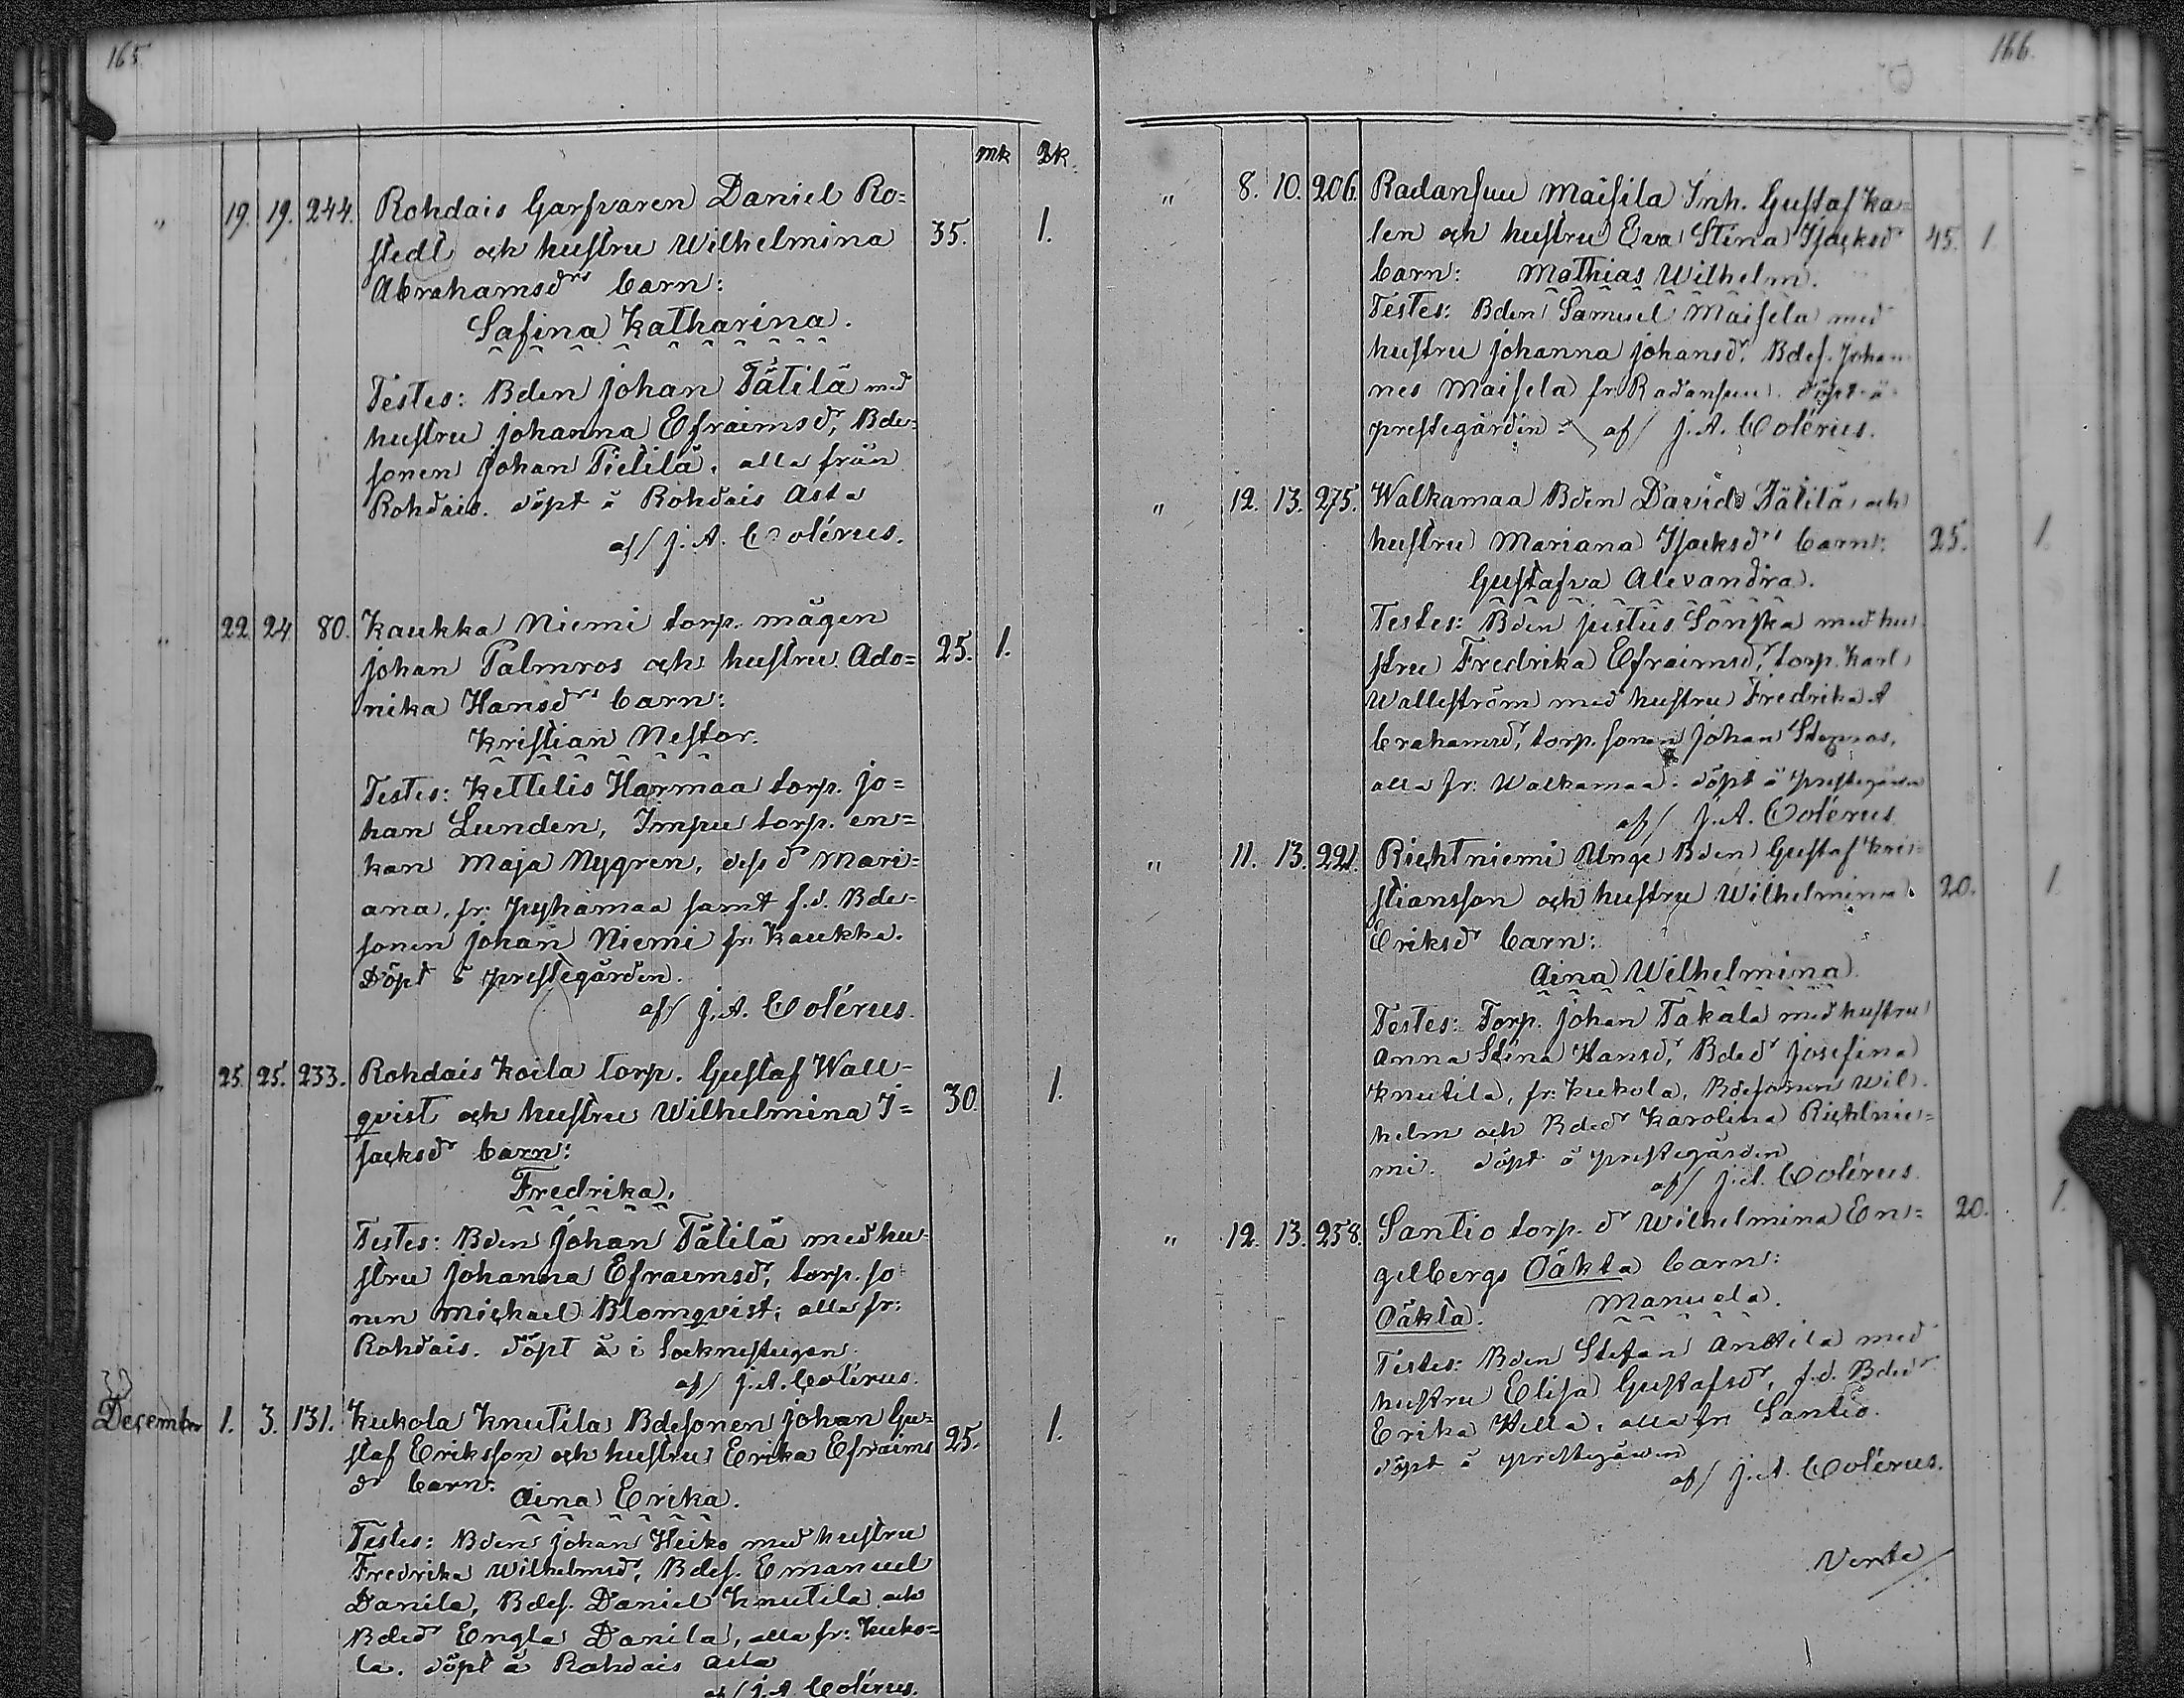 165
mk Qk.
" 19. 19. 244. Rohdais Garfvaren Daniel Ro=
stedt och hustru Wilhelmina 35. 1.
Abrahamsdrs barn:
Safina Katharina.
Testes: Bden Johan Tätilä med
hustru Johanna Efraimsdr, Bde=
sonen Johan Pietilä, alla från
Rohdais. döpt å Rohdais Asta
af/ J. A. Colérus.
" 22 24 80. Kaukka Niemi torp. mågen
Johan Palmros och hustru Ado= 25. 1.
nika Hansdrs barn:
Kristian Nestor.
Testes: Kettelis Harmaa torp. Jo=
han Lunden, Impu torp. en=
kan Maja Nygren, dess dr Mari=
ana, fr: Pyhämaa samt f.d. Bde=
sonen Johan Niemi fr: Kaukka.
Döpt å prestegården.
af/ J. A. Colérus.
" 25. 25. 233. Rohdais Koila torp. Gustaf Wall=
qvist och hustru Wilhelmina I= 30. 1.
sacksdr barn:
Fredrika.
Testes: Bden Johan Tätilä med hu=
stru Johanna Efraimsdr, torp. so=
nen Michael Blomqvist; alla fr:
Rohdais. döpt å i Socknestugan
af/ J. A. Colérus.
December 1. 3. 131. Kukola Knutila Bdesonen Johan Gu=
staf Eriksson och hustru Erika Efraims 25. 1.
dr barn:
Aina Erika.
Testes: Bden Johan Heiko med hustru
Fredrika Wilhelmsdr, Bdes. Emanuel
Danila, Bdes. Daniel Knutila och
Bdedr Engla Danila, alla fr: Kuko=
la. döpt å Rohdais Asta
af/ J. A. Colérus.
166.
" 8. 10. 206. Radansuu Maisila Inh. Gustaf Ka=
len och hustru Eva Stina Isacksdr 45. 1
barn: Mathias Wilhelm.
Testes: Bden Samuel Maisela med
hustru Johanna Johansdr. Bdes. Johan=
nes Maisela fr: Radansuu. döpt å
prestegården af/ J. A. Colérus.
" 12. 13. 275. Walkamaa Bden David Tätilä och
hustru Mariana Isacksdrs barn: 25. 1.
Gustafva Alexandra.
Testes: Bden Justus Sonska med hu=
stru Fredrika Efraimsdr, torp. Karl
Wallström med hustru Fredrika A
brahamsdr, torp. sonen Johan
alla fr: Walkamaa. döpt å prestegården
af/ J. A. Colérus
" 11. 13. 221. Richtniemi Unge Bden Gustaf Kri=
stiansson och hustru Wilhelmina 20. 1
Eriksdr barn:
Aina Wilhelmina
Testes: Torp. Johan Takala med hustru
Anna Stina Hansdr, Bdedr Josefina
Knutila, fr: Kukola, Bdesonen Wil=
helm och Bdedr Karolina Richtnie=
mi. döpt å prestegården
af/ J. A. Colérus.
" 12. 13. 258. Santio torp. dr Wilhelmina En= 20. 1.
gelbergs Oäkta barn:
Oäkta. Manuela.
Testes: Bden Stefan Anttila med
hustru Elisa Gustafsdr, f.d. Bdedr
Erika Villa, alla fr: Santio.
döpt å prestegården
af/ J. A. Colérus.
Verte